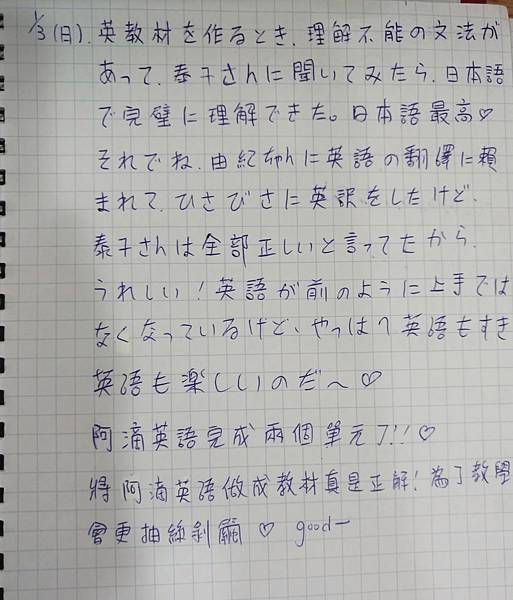 1/3(日). 英教材を作るとき、理解不能の文法が
あって、泰子さんに聞いてみたら、日本語
で完璧に理解できた。日本語最高♡
それでね、由紀ちゃんに英語の翻譯に頼
まれて、ひさびさに英訳をしたけど、
泰子さんは全部正しいと言ってたから、
うれしい！英語が前のように上手では
なくなっているけど、やっぱり英語もすき
英語も楽しいのだ～♡
阿滴英語完成兩個單元了!!♡
將阿滴英語做成教材真是正解！為了教學
會更抽絲剝繭♡ good—